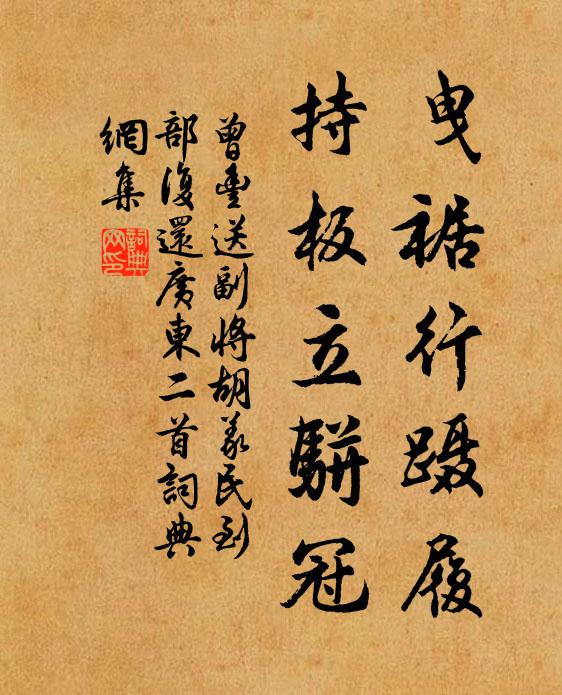 曳裾行蹑履
持板立駢冠
曾豊送副將胡義民到
部復還廣東二首詞典
網集
詞典
网印